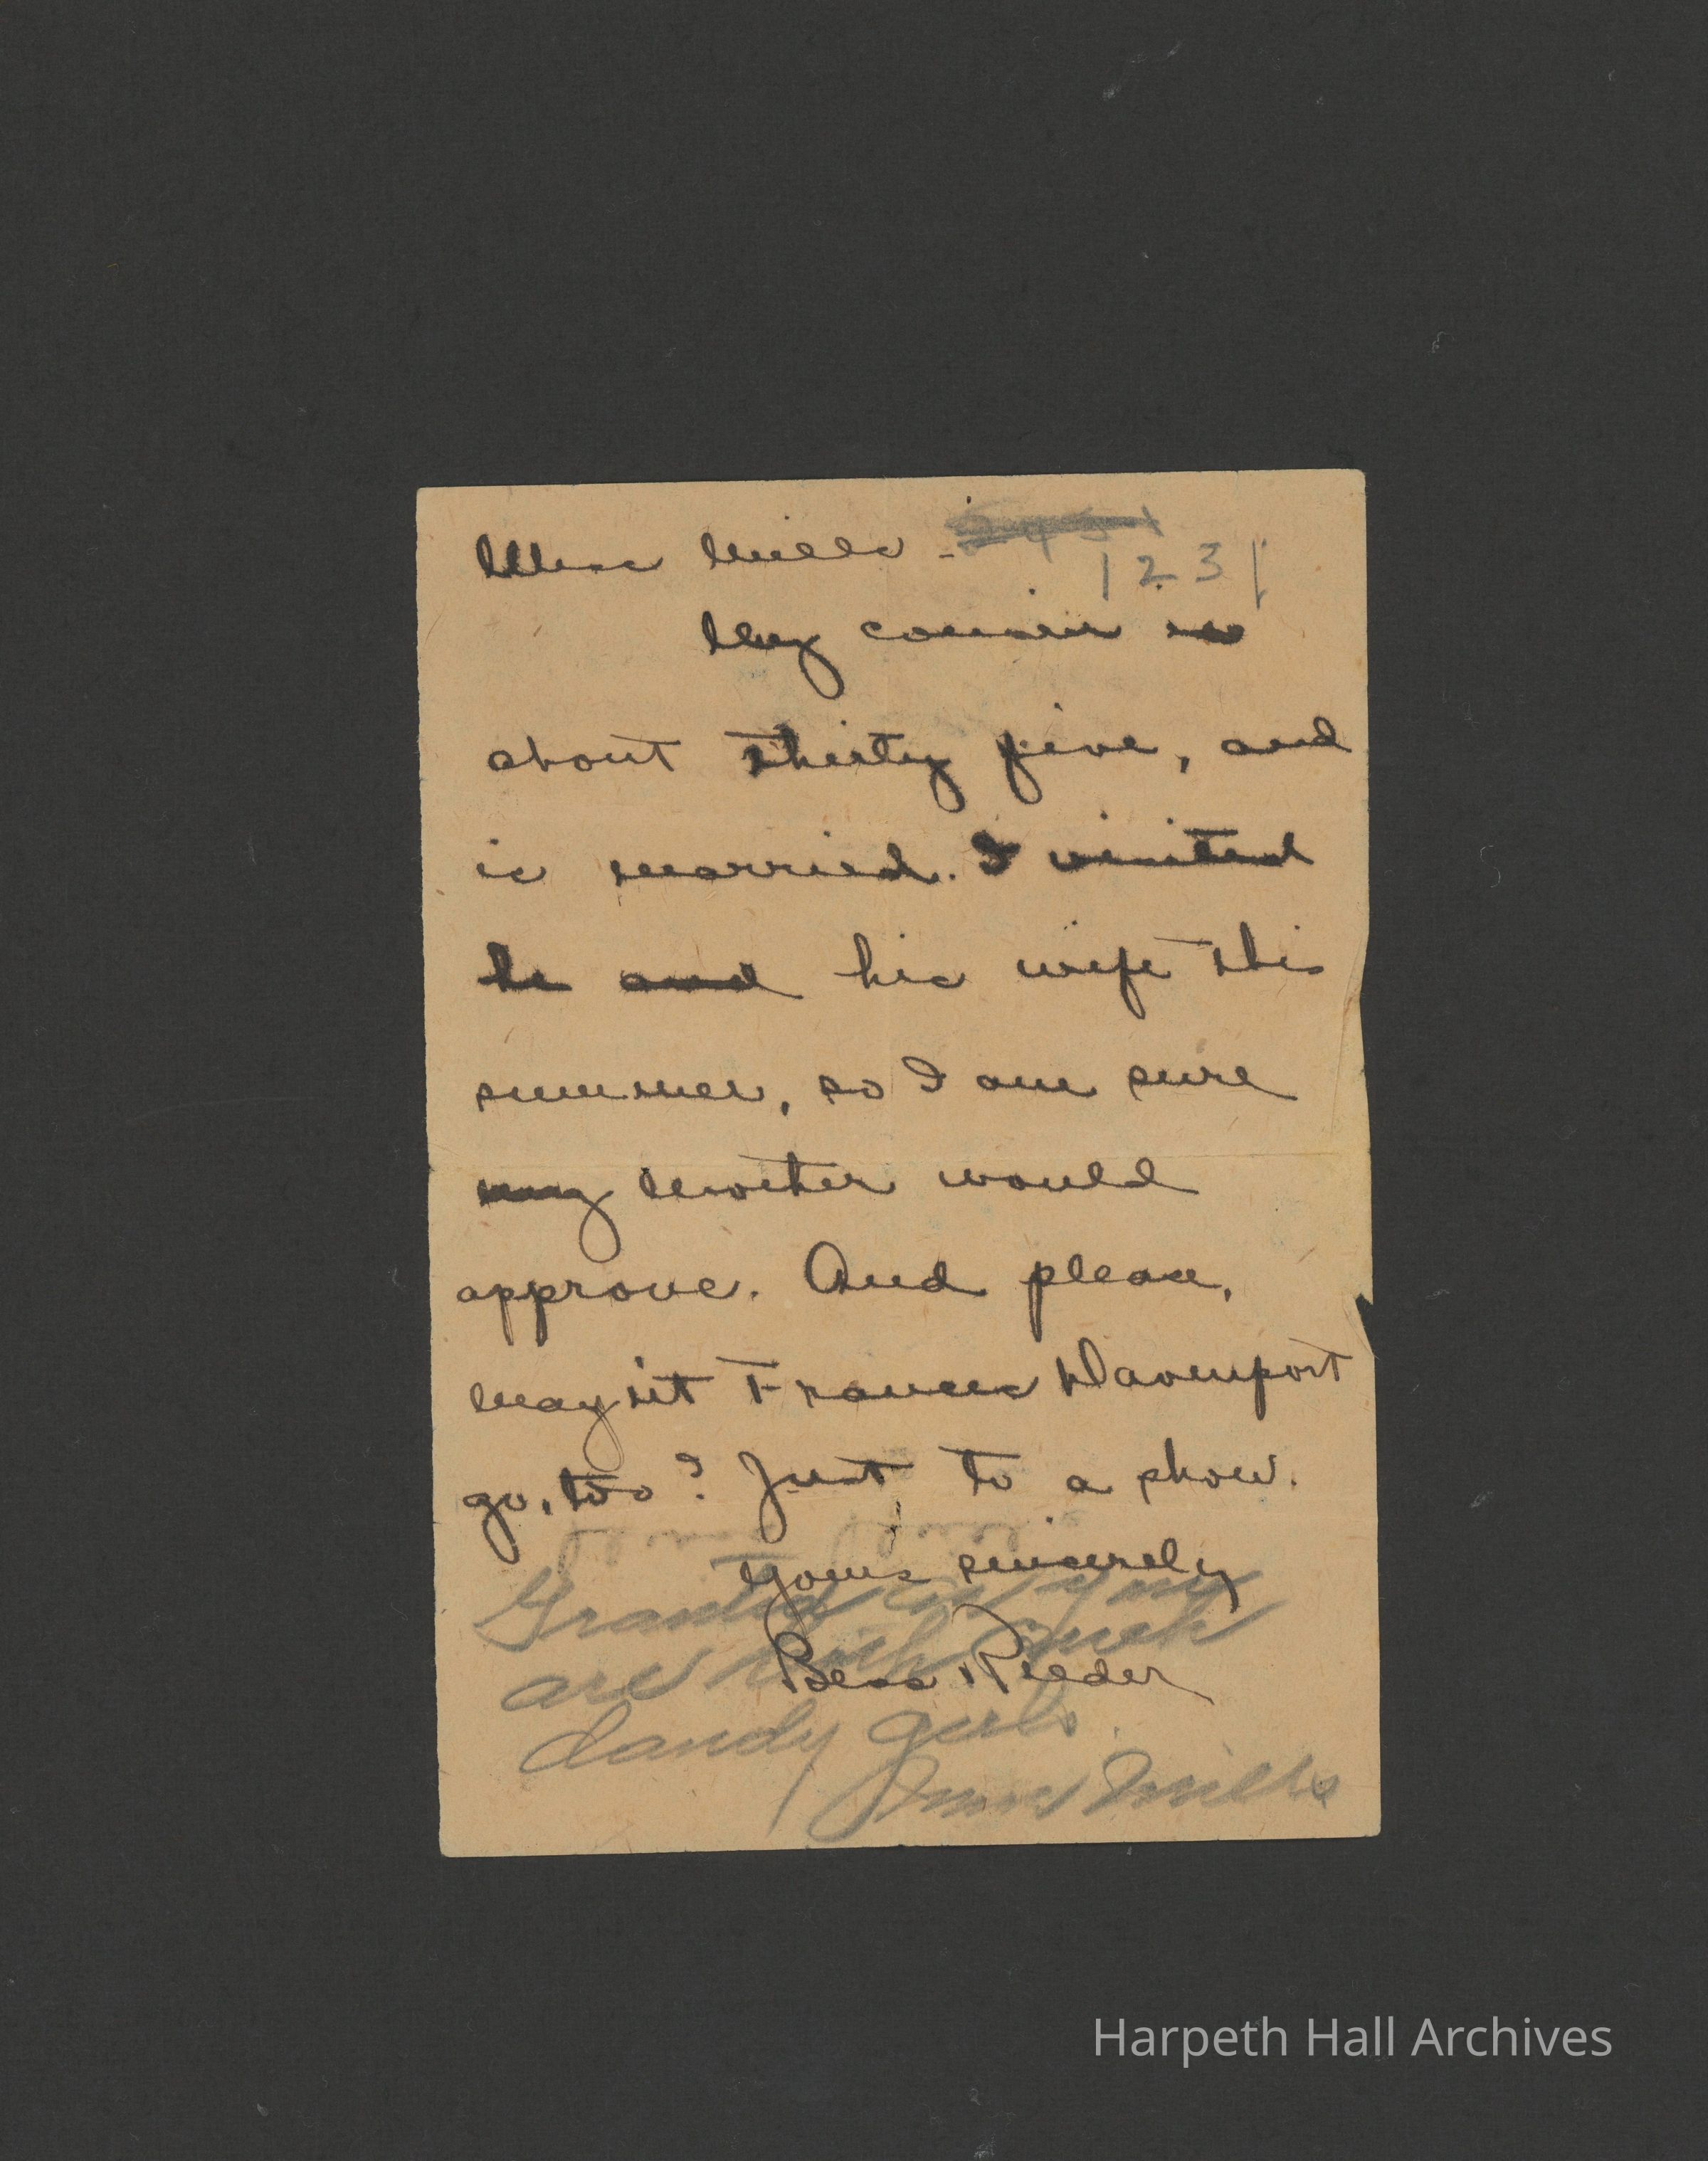 Miss Mills -
1231
My cousin is
about thirty five, and
is married. I visited
he and his wife this
summer, so I am sure
my mother would
approve. And please,
may Frances Davenport
go, too? Just to a show.
Yours sincerely
Bess Reeder
Granted as you
are both such
dandy girls.
Mills
Harpeth Hall Archives